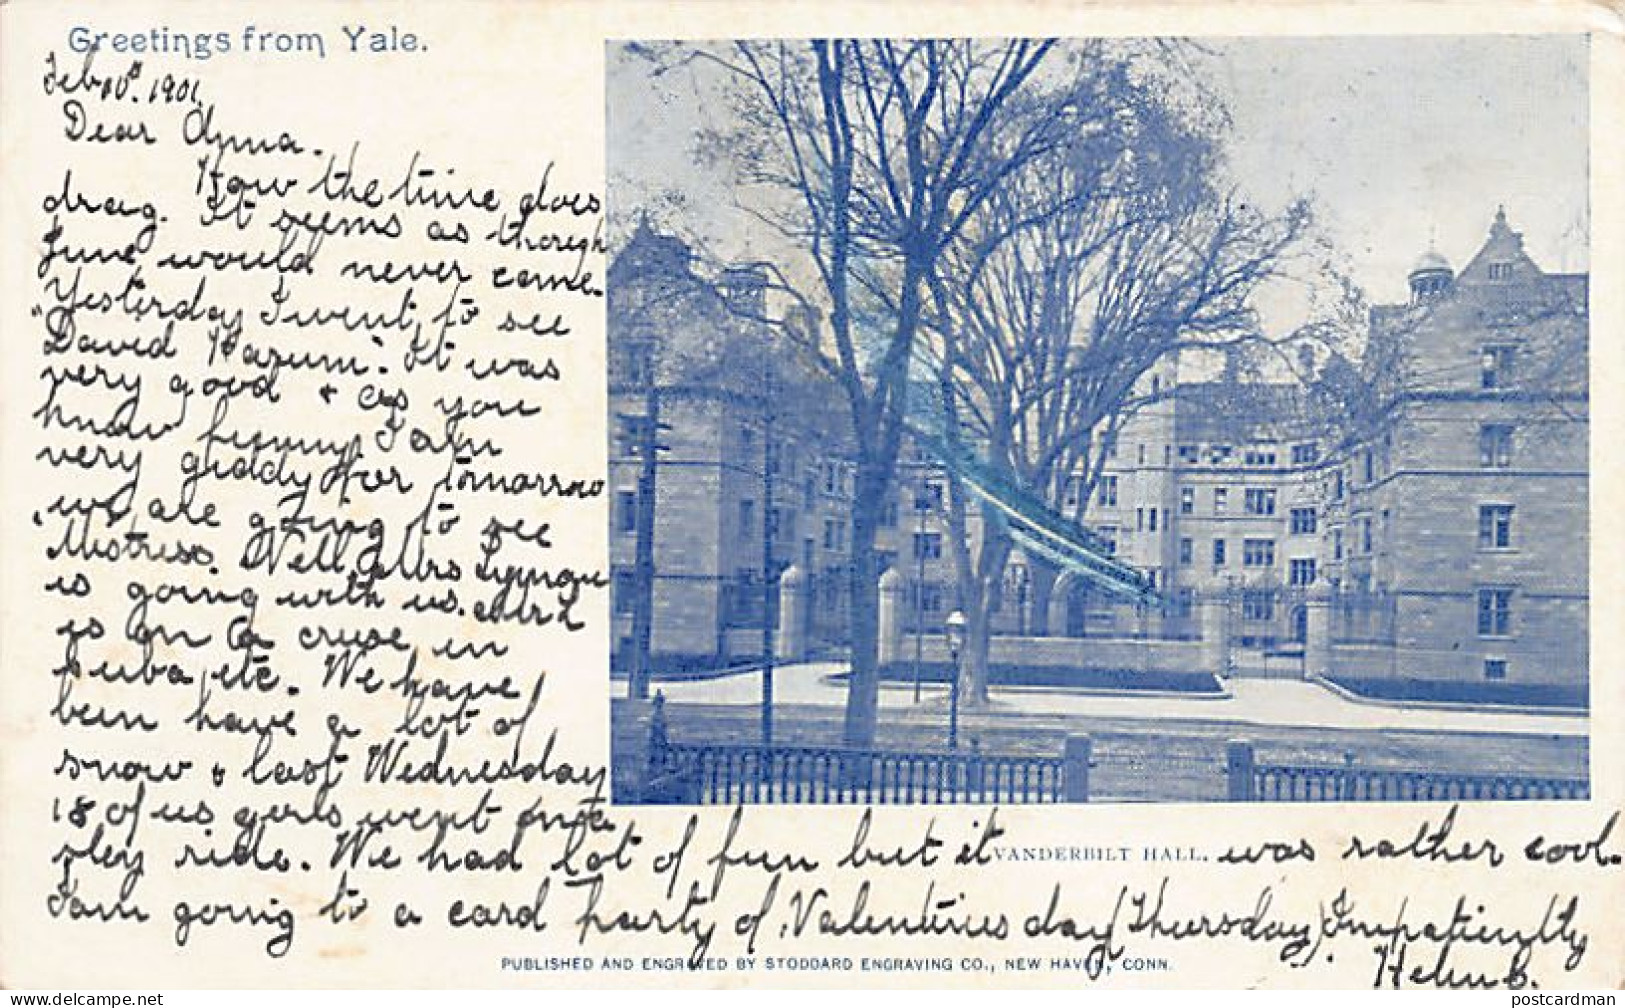 Greetings from Yale.
Feb 10. 1901.
Dear Anna.
How the time does
drag. It seems as though
June would never come.
Yesterday I went to see
"David Harum". It was
very good & as you
know funny. I am
very giddy for tomorrow
we are going to see
Mistress. Well, Mrs
is going with us. Mr L
is on a cruse in
Cuba, etc. We have
been have a lot of
snow & last Wednesday
18 of us girls went on a
sley ride. We had lot of fun but it was rather cool.
VANDERBILT HALL.
I am going to a card party of Valentines day (Thursday) Impatiently
PUBLISHED AND ENGRAVED BY STODDARD ENGRAVING CO., NEW HAVEN, CONN.
Helen B.
delcampe.net
postcardman